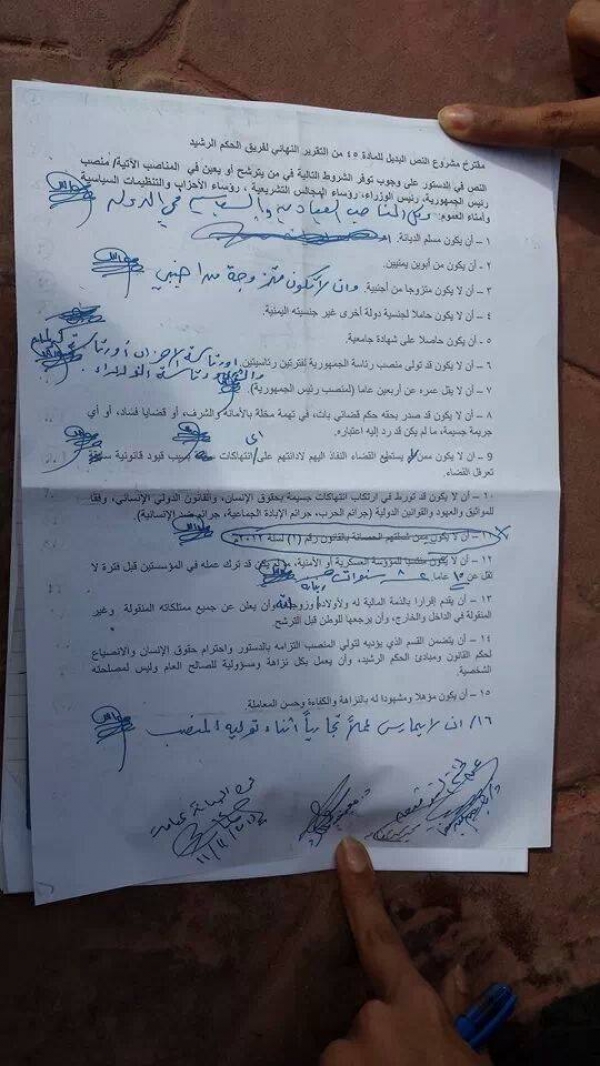 مقترح مشروع النص البديل للمادة ٤٥ من التقرير النهائي لفريق الحكم الرشيد
النص في الدستور على وجوب توفر الشروط التالية في من يترشح أو يعين في المناصب الآتية/ منصب
رئيس الجمهورية، رئيس الوزراء، رؤساء المجالس التشريعية ، رؤساء الأحزاب والتنظيمات السياسية
وأمناء العموم: وكل المناصب القيادية والسياسية في الدولة
١ – أن يكون مسلم الديانة.
٢ – أن يكون من أبوين يمنيين.
٣ – أن لا يكون متزوجا من أجنبية. وان لا تكون متزوجة من اجنبي
٤ – أن لا يكون حاملا لجنسية دولة أخرى غير جنسيته اليمنية.
٥ – أن يكون حاصلا على شهادة جامعية.
٦ – أن لا يكون قد تولى منصب رئاسة الجمهورية لفترتين رئاسيتين. اورئاسة الاحزاب أورئاسة
ورئاسة الوزراء
٧ – أن لا يقل عمره عن أربعين عاما (لمنصب رئيس الجمهورية).
٨ – أن لا يكون قد صدر بحقه حكم قضائي بات، في تهمة مخلة بالأمانة والشرف، أو قضايا فساد، أو أي
جريمة جسيمة، ما لم يكن قد رد إليه اعتباره.
٩ - ان لا يكون ممن لا يستطيع القضاء النفاذ اليهم لادانتهم على اي انتهاكات بسبب قيود قانونية
تعرقل القضاء.
١٠ – أن لا يكون قد تورط في ارتكاب انتهاكات جسيمة بحقوق الإنسان، والقانون الدولي الإنساني، وفقا
للمواثيق والعهود والقوانين الدولية (جرائم الحرب، جرائم الإبادة الجماعية، جرائم ضد الإنسانية).
١١ – أن لا يكون ممن شملتهم الحصانة بالقانون رقم (١) لسنة ٢٠١٢م
١٢ – أن لا يكون منتسبا للمؤسسة العسكرية أو الأمنية، ما لم يكن قد ترك عمله في المؤسستين قبل فترة لا
تقل عن ١٠ عاما. عشر سنوات
١٣ – أن يقدم إقرارا بالذمة المالية له ولأولاده وزوجاته، وأن يعلن عن جميع ممتلكاته المنقولة وغير
المنقولة في الداخل والخارج، وأن يرجعها للوطن قبل الترشح.
١٤ – أن يتضمن القسم الذي يؤديه لتولي المنصب التزامه بالدستور واحترام حقوق الإنسان والانصياع
لحكم القانون ومبادئ الحكم الرشيد، وأن يعمل بكل نزاهة ومسؤولية للصالح العام وليس لمصلحته
الشخصية.
١٥ – أن يكون مؤهلا ومشهودا له بالنزاهة والكفاءة وحسن المعاملة
١٦/ ان لا يمارس عملاً تجارياً أثناء توليه المنصب